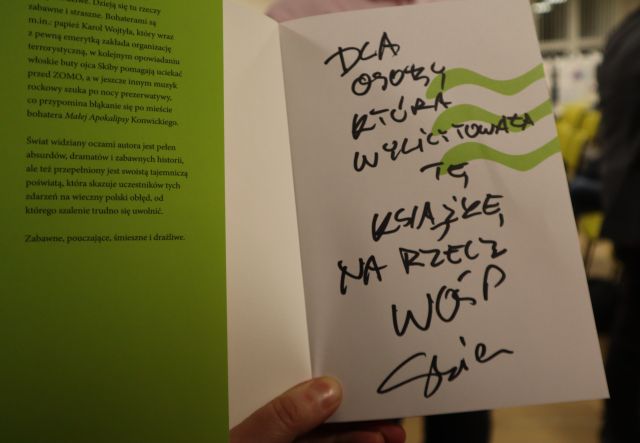 zabawne i straszne. Bohaterami są
m.in.: papież Karol Wojtyła, który wraz
z pewną emerytką zakłada organizację
terrorystyczną, w kolejnym opowiadaniu
włoskie buty ojca Skiby pomagają uciekać
przed ZOMO, a w jeszcze innym muzyk
rockowy szuka po nocy prezerwatywy,
co przypomina błąkanie się po mieście
bohatera Małej Apokalipsy Konwickiego.
Świat widziany oczami autora jest pełen
absurdów, dramatów i zabawnych historii,
ale też przepełniony jest swoistą tajemniczą
poświatą, która skazuje uczestników tych
zdarzeń na wieczny polski obłęd, od
którego szalenie trudno się uwolnić.
Zabawne, pouczające, śmieszne i drażliwe.
DLA
OSOBY
KTÓRA
WYLICYTOWAŁA
TĘ
KSIĄŻKĘ,
NA RZECZ
WOŚP